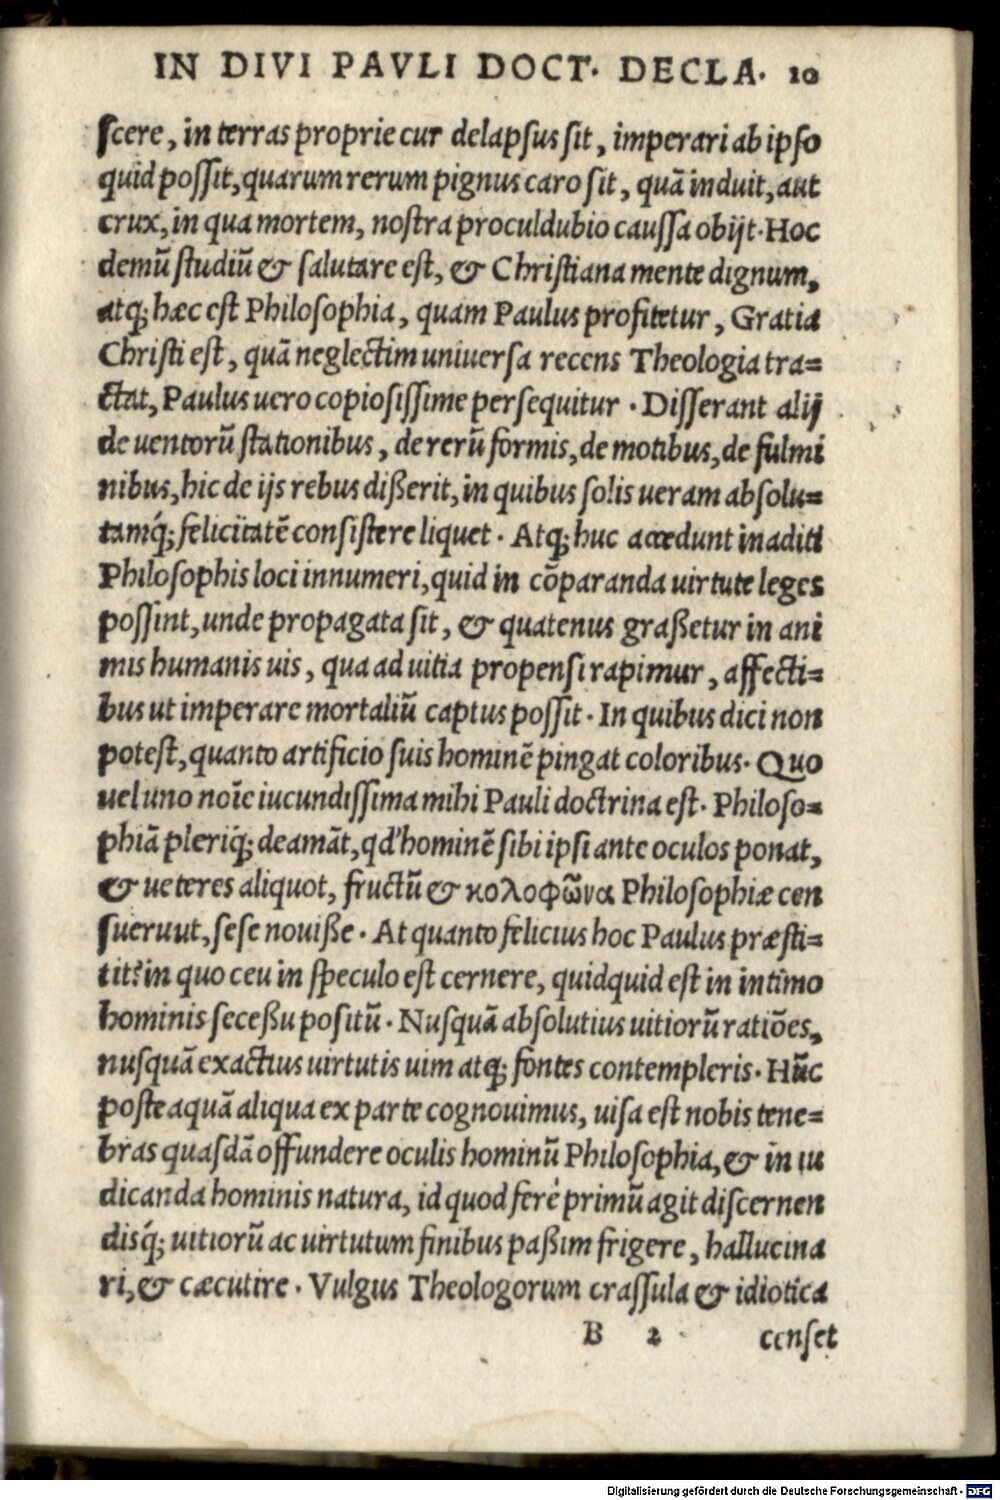 IN DIVI PAVLI DOCT. DECLA. 10
scere, in terras proprie cur delapsus sit, imperari ab ipso
quid possit, quarum rerum pignus caro sit, quā induit, aut
crux, in qua mortem, nostra proculdubio caussa obijt. Hoc
demū studiū & salutare est, & Christiana mente dignum,
atq; hæc est Philosophia, quam Paulus profitetur, Gratia
Christi est, quā neglectim uniuersa recens Theologia tra=
ctat, Paulus uero copiosissime persequitur. Disserant alij
de uentorū stationibus, de rerū formis, de motibus, de fulmi
nibus, hic de ijs rebus dißerit, in quibus solis ueram absolu=
tamq́; feliciitatē consistere liquet. Atq; huc accedunt inaditi
Philosophis loci innumeri, quid in cōparanda uirtute leges
possint, unde propagata sit, & quatenus graßetur in ani
mis humanis uis, qua ad uitia propensi rapimur, affecti=
bus ut imperare mortaliū captus possit. In quibus dici non
potest, quanto artificio suis hominē pingat coloribus. Quo
uel uno noīe iucundissima mihi Pauli doctrina est. Philoso=
phiā pleriq́; deamāt, qd' hominē sibi ipsi ante oculos ponat,
& ueteres aliquot, fructū & κολοφῶνα Philosophiæ cen
sueruut, sese nouiße. At quanto felicius hoc Paulus præsti=
tit? in quo ceu in speculo est cernere, quidquid est in intimo
hominis seceßu positū. Nusquā absolutius uitiorū ratiōes,
nusquā exactius uirtutis uim atq; fontes contempleris. Hūc
posteaquā aliqua ex parte cognouimus, uisa est nobis tene=
bras quasdā offundere oculis hominū Philosophia, & in iu
dicanda hominis natura, id quod ferè primū agit discernen
disq́; uitiorū ac uirtutum finibus paßim frigere, hallucina
ri, & cæcutire. Vulgus Theologorum crassula & idiotica
B 2 censet
Digitalisierung gefördert durch die Deutsche Forschungsgemeinschaft - DFG